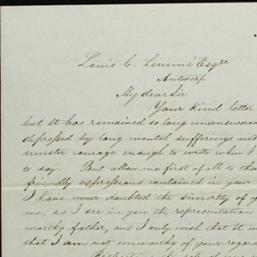 Louis C. Lemmé Esqre
Antwerp
My dear Sir
Your kind letter
but it has remained so long unanswered
depressed by long mental sufferings
courage enough to write when I
to say. But allow me first of all to
friendly expressions contained in your
I have never doubted the sincerity of
me, as I see in you the representation
worthy father, and I only wish that it
that I am not unworthy of your regard